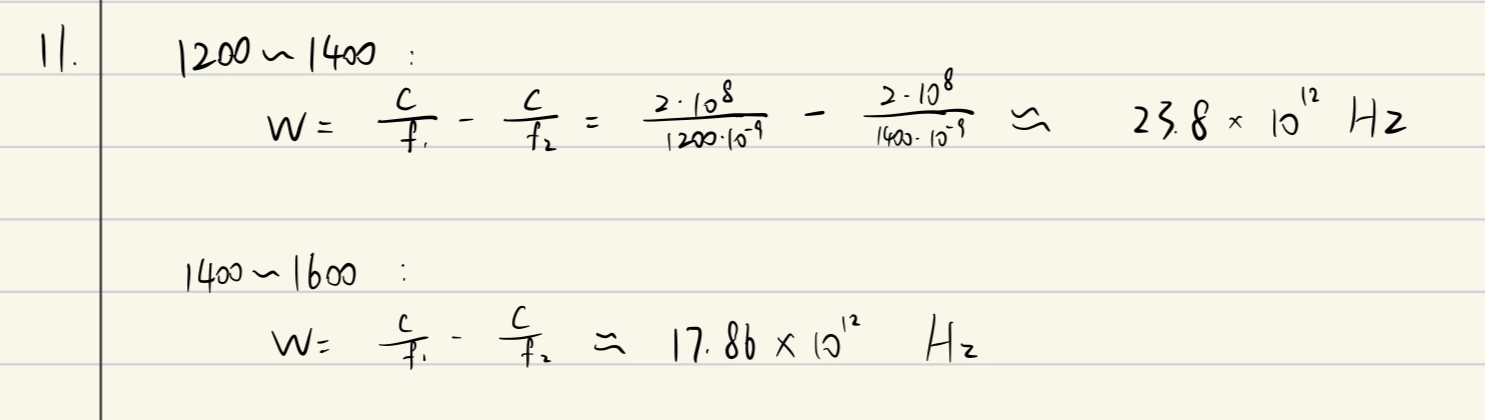 11. 1200 ~ 1400 :
W = c/f₁ - c/f₂ = 2·10⁸/1200·10⁻⁹ - 2·10⁸/1400·10⁻⁹ ≈ 23.8 × 10¹² Hz
1400 ~ 1600 :
W = c/f₁ - c/f₂ ≈ 17.86 × 10¹² Hz